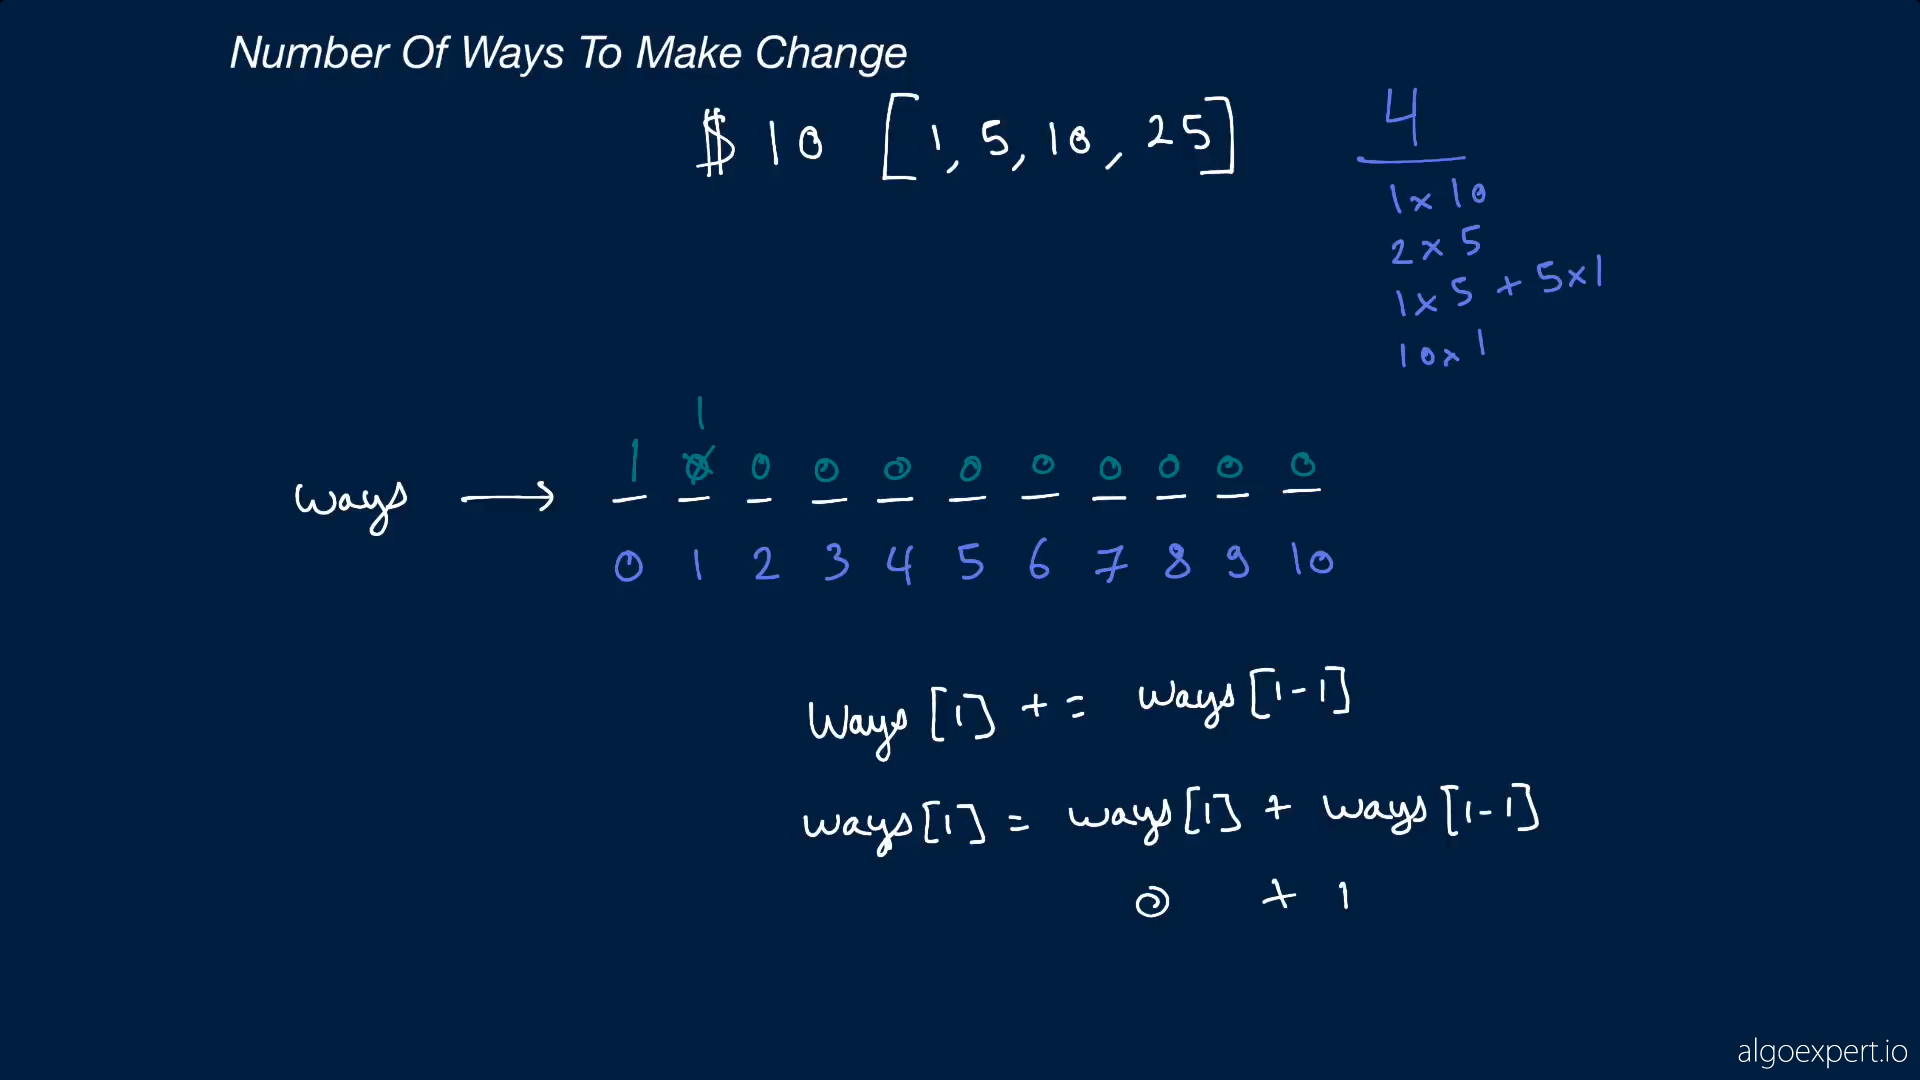 Number Of Ways To Make Change
$ 10 [1, 5, 10, 25]
4
1 x 10
2 x 5
1 x 5 + 5 x 1
10 x 1
1
1 0 0 0 0 0 0 0 0 0 0
ways →
0 1 2 3 4 5 6 7 8 9 10
Ways [1] += ways [1-1]
ways [1] = ways [1] + ways [1-1]
0 + 1
algoexpert.io